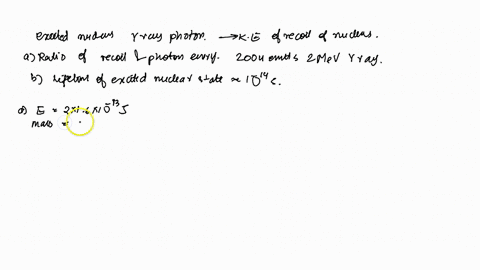 excited nucleus γ ray photon. → K.E of recoil of nucleus.
a) Ratio of recoil & photon energy. 200u emits 2 MeV γ ray.
b) lifetime of excited nuclear state ≈ 10^14 s.
a) E = 2×1.6×10^-13 J
mass =